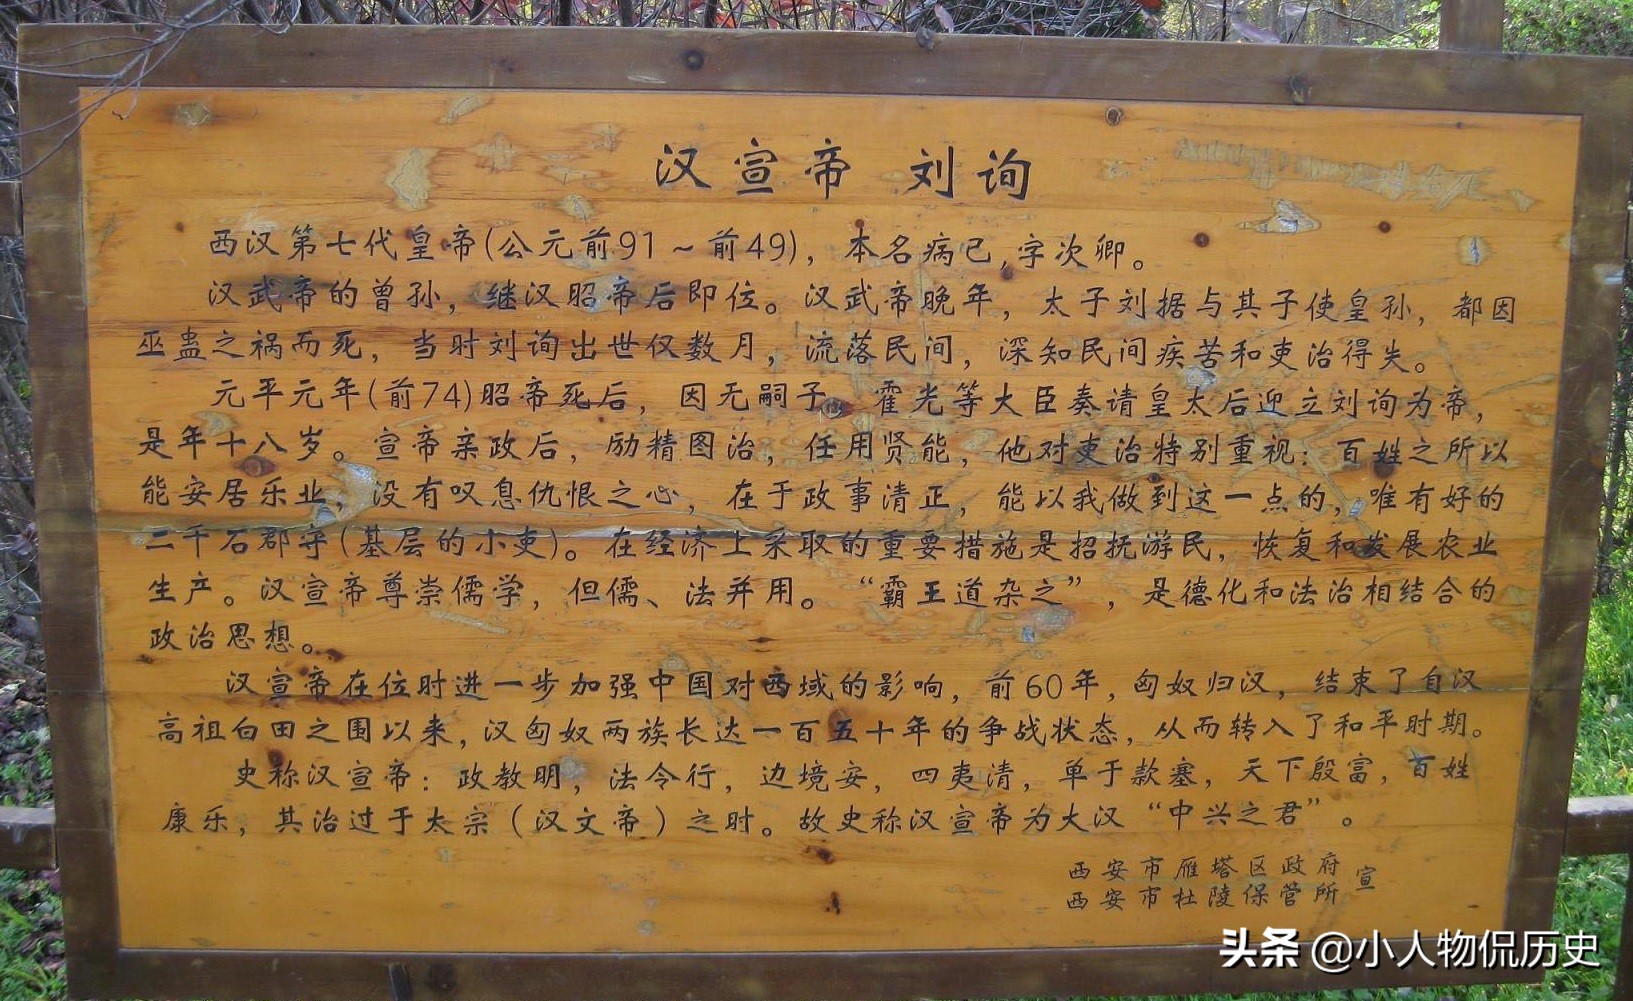 汉宣帝 刘询
西汉第七代皇帝(公元前91~前49)，本名病已,字次卿。
汉武帝的曾孙，继汉昭帝后即位。汉武帝晚年，太子刘据与其子使皇孙，都因
巫蛊之祸而死，当时刘询出世仅数月，流落民间，深知民间疾苦和吏治得失。
元平元年(前74)昭帝死后，因无嗣子，霍光等大臣奏请皇太后迎立刘询为帝，
是年十八岁。宣帝亲政后，励精图治，任用贤能，他对吏治特别重视：百姓之所以
能安居乐业，没有叹息仇恨之心，在于政事清正，能以我做到这一点的，唯有好的
二千石郡守(基层的小吏)。在经济上采取的重要措施是招抚游民，恢复和发展农业
生产。汉宣帝尊崇儒学，但儒、法并用。“霸王道杂之”，是德化和法治相结合的
政治思想。
汉宣帝在位时进一步加强中国对西域的影响，前60年，匈奴归汉，结束了自汉
高祖白田之围以来，汉匈奴两族长达一百五十年的争战状态，从而转入了和平时期。
史称汉宣帝：政教明，法令行，边境安，四夷清，单于款塞，天下殷富，百姓
康乐，其治过于太宗（汉文帝）之时。故史称汉宣帝为大汉“中兴之君”。
西安市雁塔区政府
西安市杜陵保管所 宣
头条 @小人物侃历史